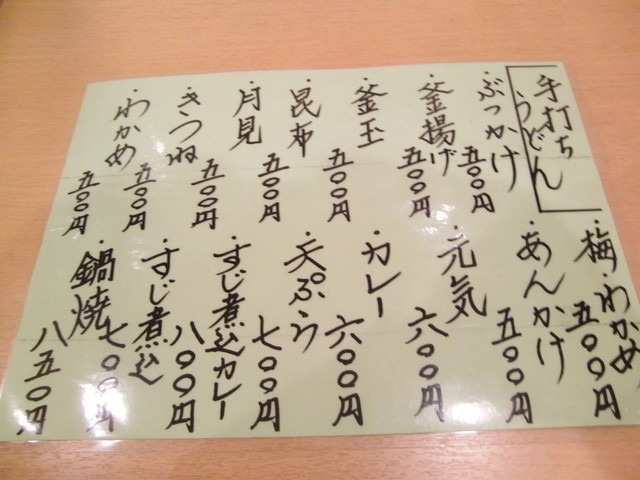 手打ち
うどん
・ぶっかけ 五〇〇円
・釜揚げ 五〇〇円
・釜玉 五〇〇円
・昆布 五〇〇円
・月見 五〇〇円
・きつね 五〇〇円
・わかめ 五〇〇円
・梅・わかめ 五〇〇円
・あんかけ 五〇〇円
・元気 六〇〇円
・カレー 六〇〇円
・天ぷら 七〇〇円
・すじ煮込カレー 八〇〇円
・すじ煮込 七〇〇円
・鍋焼 八五〇円